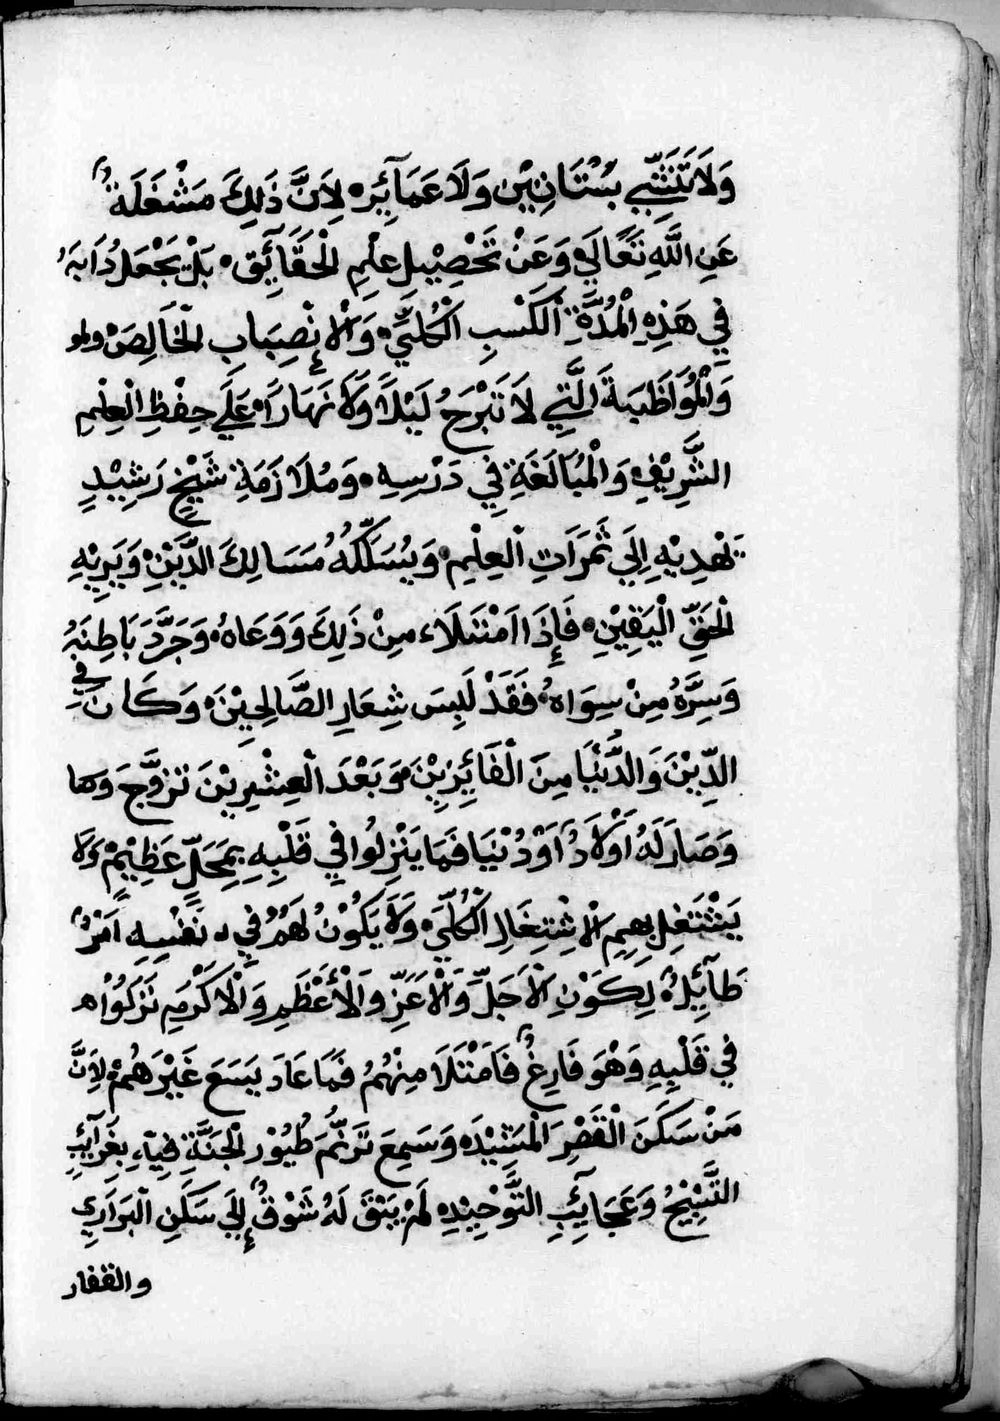 وَلَا تَنَشِّي بِسْتَانِيْنَ وَلَا عَمَآئِرَ، لِاَنَّ ذَلِكَ مَشْغَلَةٌ
عَنِ اللَّهِ تَعَالَي وَعَنْ تَحْصِيْلِ عِلْمِ الْحَقَآئِقِ، بَلْ يَجْعَلُ دَابَهُ
فِي هَذِهِ الْمُدَّةِ اَلْكَسْبِ الْكُلِّيِّ، وَالْاِنْصِبَابِ الْخَالِصِ
وَالْمُوَاظَبَةَ الَّتِي لَا تَبْرَحُ لَيْلًا وَلَا نَهَارًا، عَلَي حِفْظِ الْعِلْمِ
الشَّرِيْفِ وَالْمُبَالَغَةِ فِي دَرْسِهِ، وَمُلَازَمَةِ شَيْخٍ رَشِيْدٍ
يَهْدِيْهِ اِلَي ثَمَرَاتِ الْعِلْمِ، وَيُسَلِّكُهُ مَسَالِكَ الدِّيْنِ وَيُرِيْهِ
الْحَقِّ الْيَقِيْنِ، فَإِذَا امْتَلَاء مِنْ ذَلِكَ وَوَعَاهُ، وَجَرَّدَ بَاطِنَهُ
وَسِرَّهُ مِنْ سِوَاهُ، فَقَدْ لَبِسَ شِعَارِ الصَّالِحِيْنَ، وَكَانَ فِي
الدِّيْنَ وَالدُّنْيَا مِنَ الْفَآئِزِيْنَ، وَبَعْدَ الْعِشْرِيْنَ تَزَوَّجَ وَمَا
وَصَارَ لَهُ اَوْلَادٌ اَوْ دُنْيَا فَمَا يَنْزِلُوا فِي قَلْبِهِ بِمَحَلٍّ عَظِيْمٍ وَلَا
يَشْتَغِلُ بِهِمِ الْاِشْتِغَالِ الْكُلِّيِّ، وَلَا يَكُوْنُ لَهُمْ فِي نَفْسِهِ اَمْرٌ
طَآئِلٌ، لِكَوْنِ الْاَجَلِّ وَالْاَعَزِّ وَالْاَعْظَمِ وَالْاَكْرَمِ نَزَلُوْا
فِي قَلْبِهِ وَهْوَ فَارِغٌ فَامْتَلَا مِنْهُمُ فَمَا عَادَ يَسَعَ غَيْرَهُمْ، لِاَنَّ
مَنْ سَكَنَ الْقَصْرِ الْمَشِيْدِ، وَسَمِعَ تَرَنُّمَ طُيُوْرِ الْجَنَّةِ فِيْهِ، بِغَرَآئِبِ
التَّسْبِيْحُ وَعَجَآئِبِ التَّوْحِيْدِ، لَمْ يَبْقَ لَهُ شَوْقٌ اِلَي سَكَنِ الْبَرَارِي
والقفار